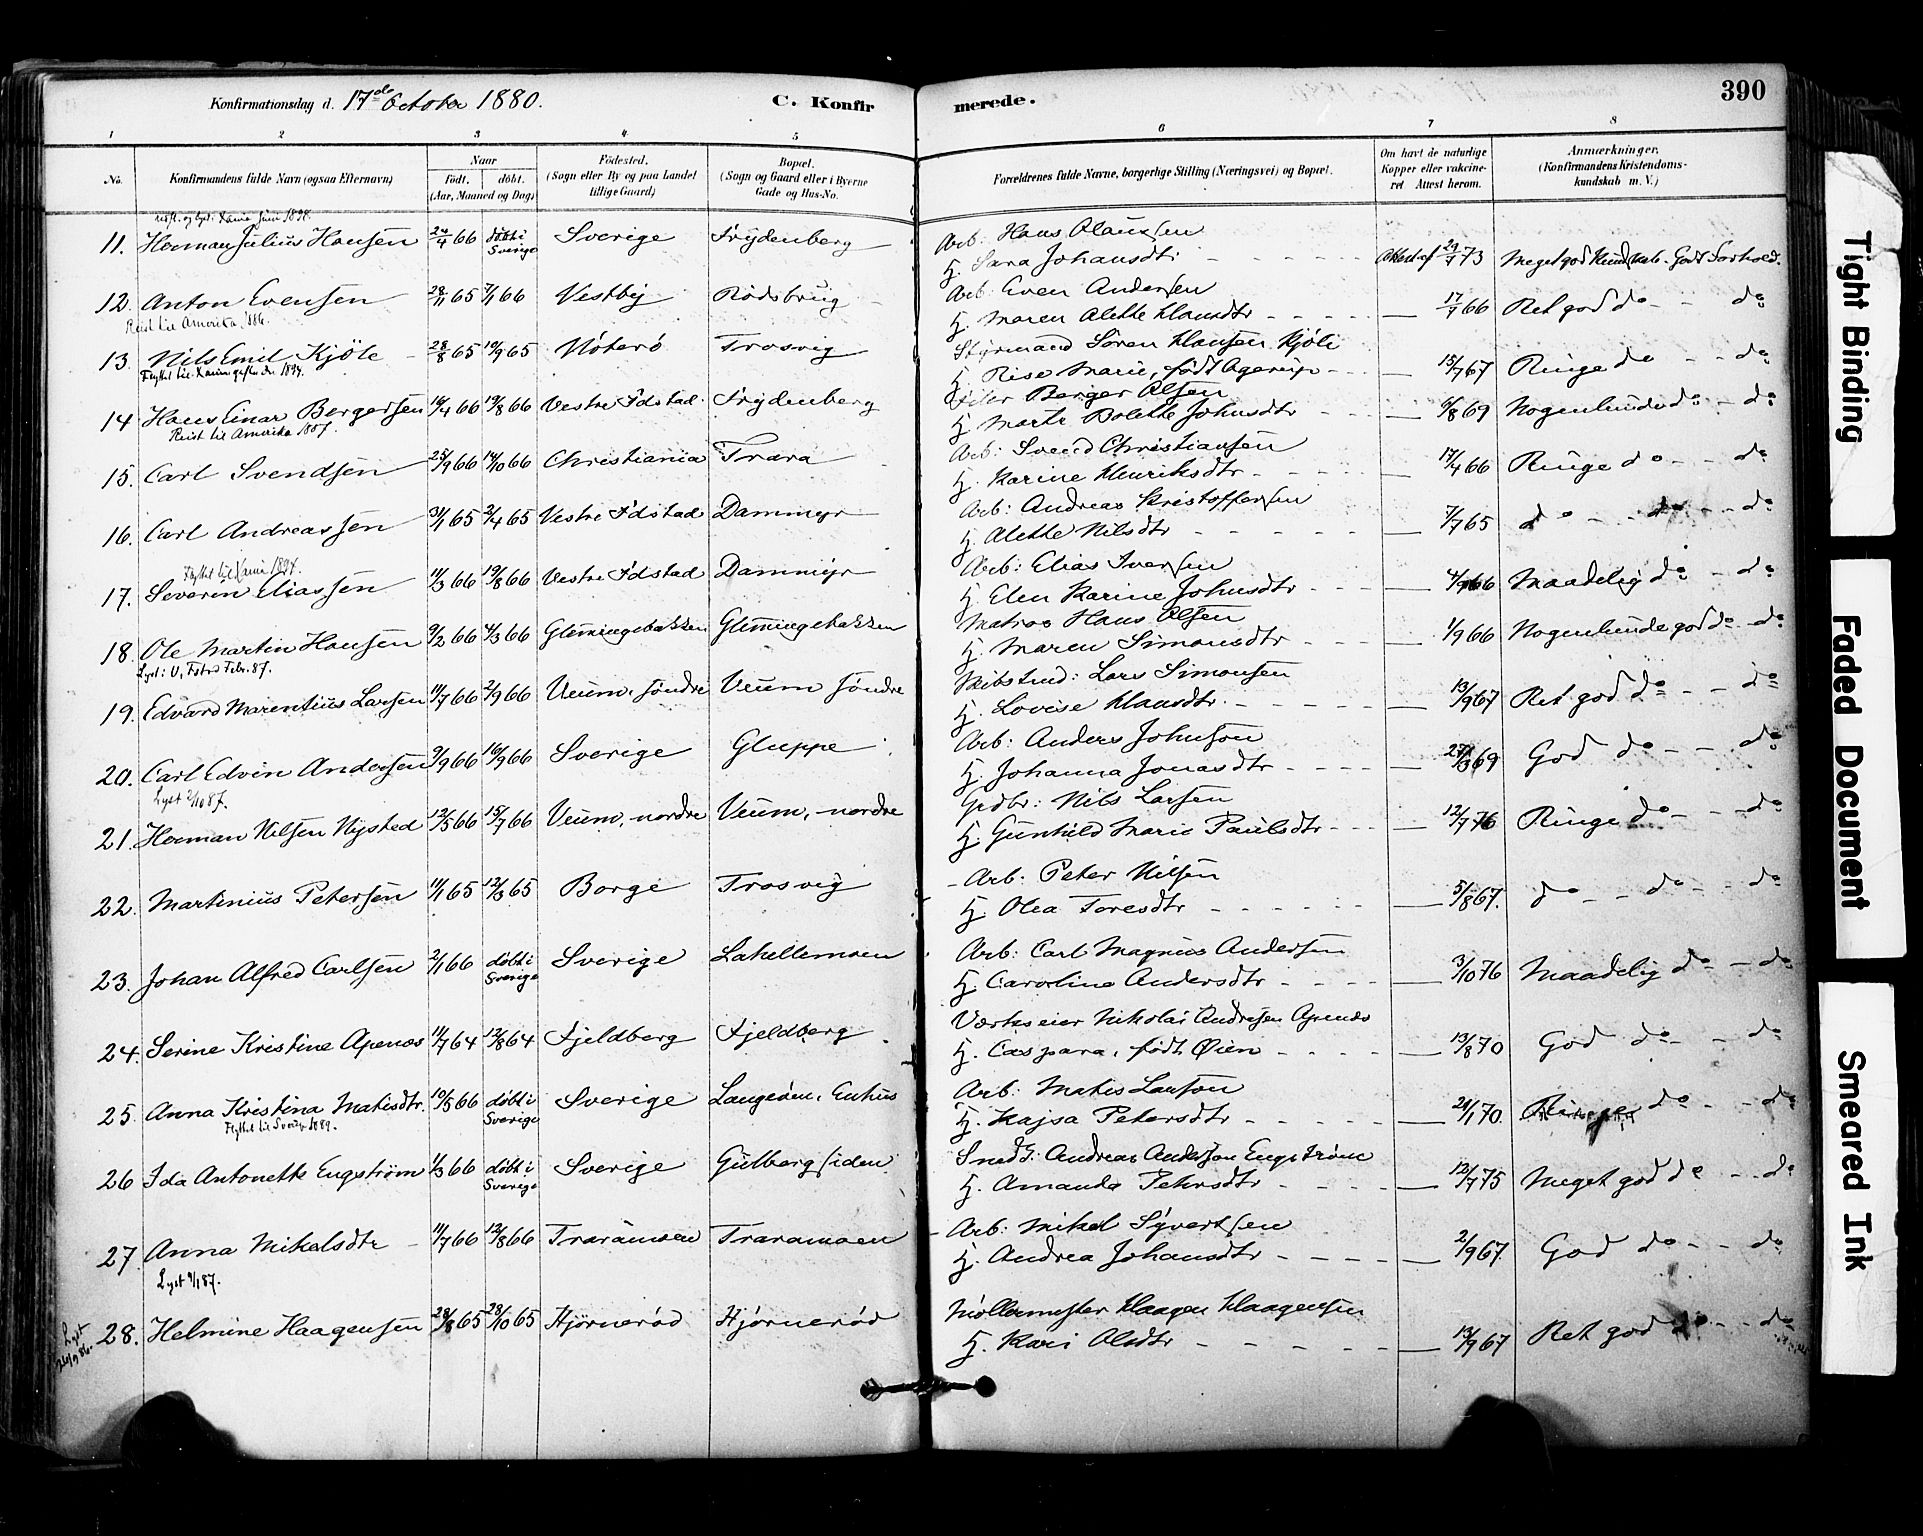 Konfirmationsdag d. 17de October 1880.
C. Konfirmerede.
390
1 2 3 4 5 6 7 8
No.
Konfirmandens fulde Navn (ogsaa Efternavn)
Naar
Født. døbt.
(Aar, Maaned og Dag)
Fødested.
(Sogn eller By og paa Landet
tillige Gaard)
Bopæl.
(Sogn og Gaard eller i Byerne
Gade og Hus-No.
Forældrenes fulde Navne, borgerlige Stilling (Næringsvei) og Bopæl.
Om havt de naturlige
Kopper eller vakcine-
ret Attest herom.
Anmærkninger.
(Konfirmandens Kristendoms-
kundskab m. V.)
11. Herman Julius Hansen 24/4 66 døbt i Sverige Sverige Frydenberg
Arb: Hans Olaussen
H. Sara Johansdtr Meget god Kundskab. Godt Forhold.
12. Anton Evensen 28/11 65 7/1 66 Vestby Rødsbrug
Arb: Even Andersen
H. Maren Alette Hansdtr 17/7 66 Ret god do - - do
Reist til Amerika 1886.
13. Nils Emil Kjöle 28/8 65 10/9 65 Nøterø Trosvig
Styrmand Sören Hansen Kjöli
H. Rise Marie, født Agerup 15/7 67 Ringe do - - do
14. Hans Einar Bergersen 10/4 66 19/8 66 Vestre Fdstad Frydenberg
Filer Berger Olsen
H. Marte Bolette Johnsdtr 6/8 69 Nogenlunde do - do
Reist til Amerika 1887.
15. Carl Svendsen 25/9 66 14/10 66 Christiania Trara
Arb: Svend Christiansen
H. Karine Henriksdtr 17/4 66 Ringe do - - do
16. Carl Andreassen 31/1 65 2/4 65 Vestre Fdstad Dammyr
Arb: Andreas Kristoffersen
H. Alette Nilsdtr 7/7 65 do - - do - - do
17. Severin Eliassen 11/3 66 19/8 66 Vestre Fdstad Dammyr
Arb: Elias Iversen
H. Elen Karine Johnsdtr Maadelig do - do
18. Ole Martin Hansen 9/2 66 4/3 66 Glemingebakken Glemingebakken
Matros Hans Olsen
H. Maren Simonsdtr 1/9 66 Nogenlunde god do - do
Lyst: V. Fstad Febr. 87.
19. Edvard Marentius Larsen 11/7 66 2/9 66 Veum, søndre Veum søndre
Skibstmd: Lars Simonsen
H. Lovise Hansdtr. 13/9 67 Ret god do - - do
20. Carl Edvin Andersen 9/9 66 16/9 66 Sverige Gluppe
Arb: Anders Johnson
H. Johanna Jonasdtr God do - - do
Lyst 2/10 87.
21. Herman Nilsen Nysted 12/5 66 15/7 66 Veum, nordre Veum, nordre
Grdbr: Nils Larsen
H. Gunhild Marie Paulsdtr 12/7 76 Ringe do - - do
22. Martinius Petersen 11/1 65 12/3 65 Borge Trosvig
Arb: Peter Nilsen
H. Olea Toresdtr 5/8 67. do - - do - - do
23. Johan Alfred Carlsen 2/1 66 døbt i Sverige Sverige Lahellemoen
Arb: Carl Magnus Andersen
H. Carolina Andersdtr 3/10 76 Maadelig do - do
24. Serine Kristine Apenæs 11/7 64 12/8 64 Fjeldberg Fjeldberg
Værkseier Nikolai Andresen Apenæs
H. Caspara, født Øien 13/8 70 God do - - do
25. Anna Kristina Matisdtr. 10/5 66 døbt i Sverige Sverige Langøen, Enhus
Arb: Matis Larson
H. Kajsa Petersdtr 21/1 70. Ringe do - - do
Flyttet til Sverige 1889.
26 Ida Antonette Engström 1/3 66 døbt i Sverige Sverige Gulbergsiden
Smed: Andreas Anderson Engström
H. Amanda Petersdtr 12/7 75 Meget god do - - do
27. Anna Mikelsdtr 11/7 66 12/8 66 Traramoen Traramoen
Arb: Mikel Syvertsen
H. Andrea Johansdtr 2/9 67. God do - - do
Lyst 9/1 87.
28. Helmine Haagensen 28/8 65 28/10 65 Hjørnerød Hjørnerød
Møllermester Haagen Haagensen
H. Kari Olsdtr 13/9 67 Ret god do - - do
Lyst
Tight Binding
Faded Document
Smeared Ink